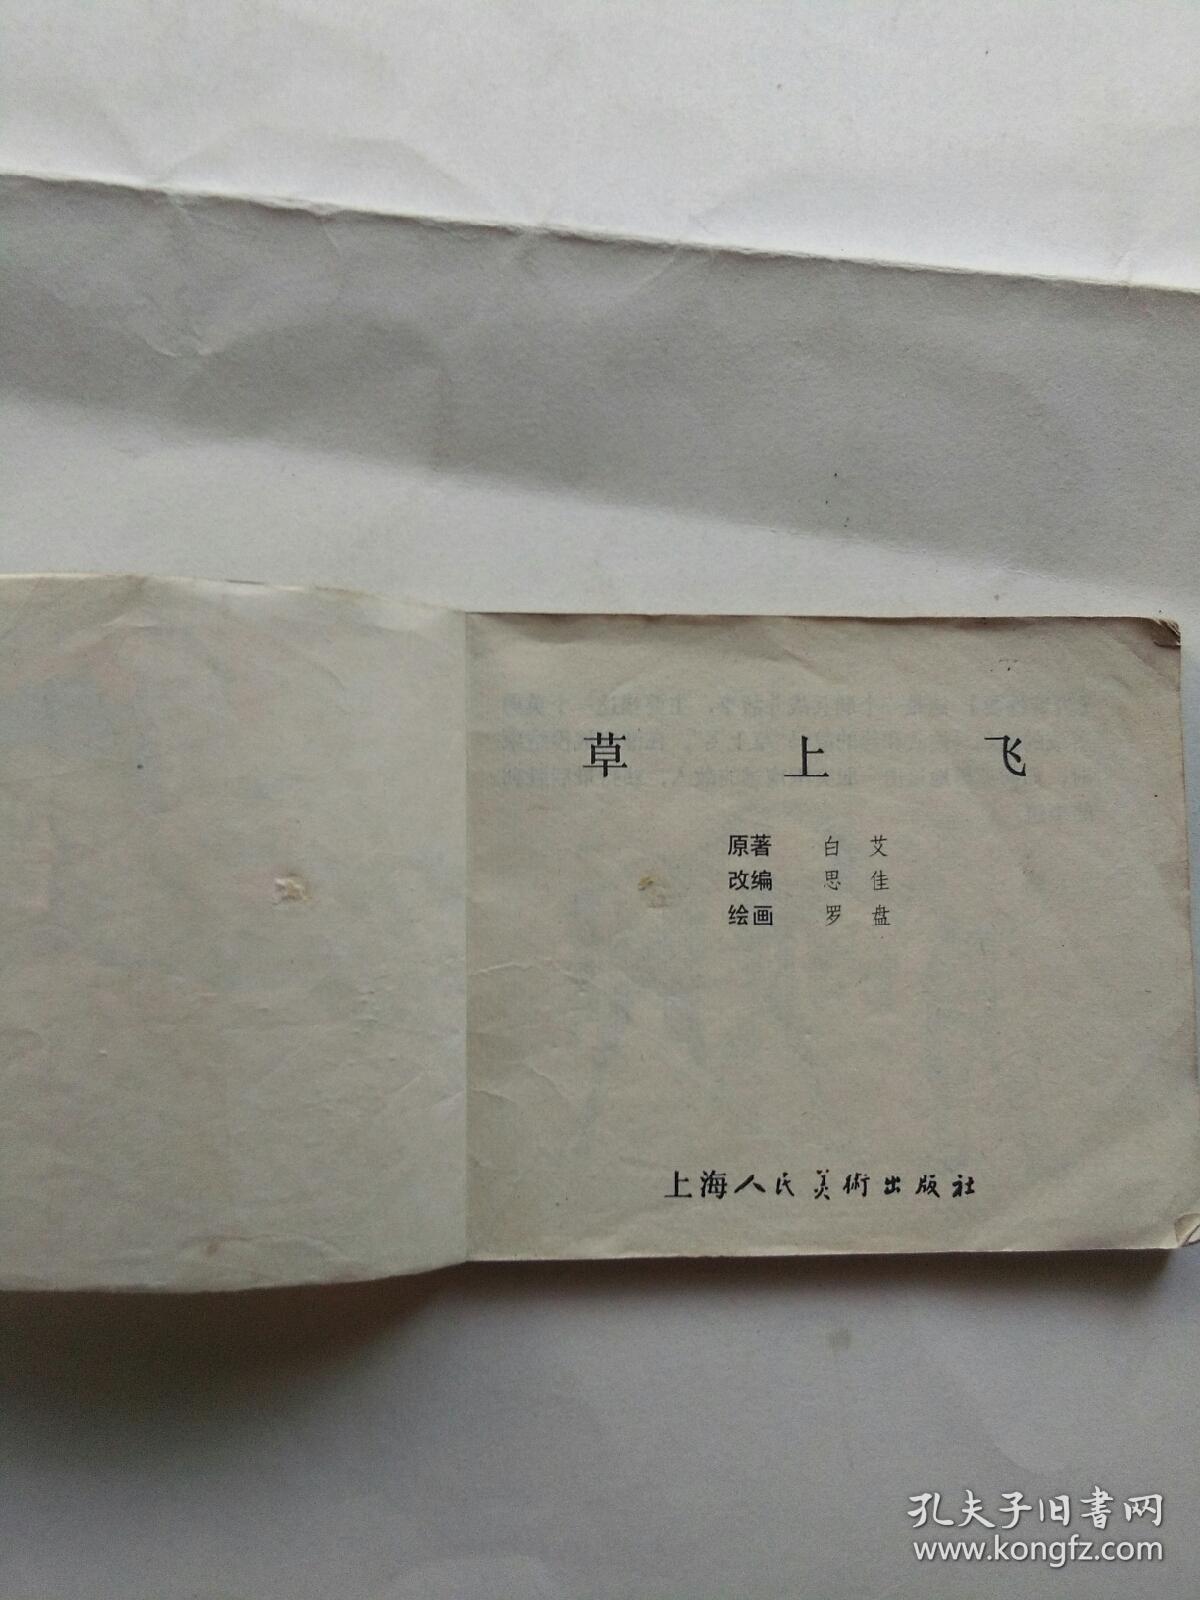 草 上 飞
原著 白 艾
改编 思 佳
绘画 罗 盘
上海人民美術出版社
孔夫子旧书网
www.kongfz.com